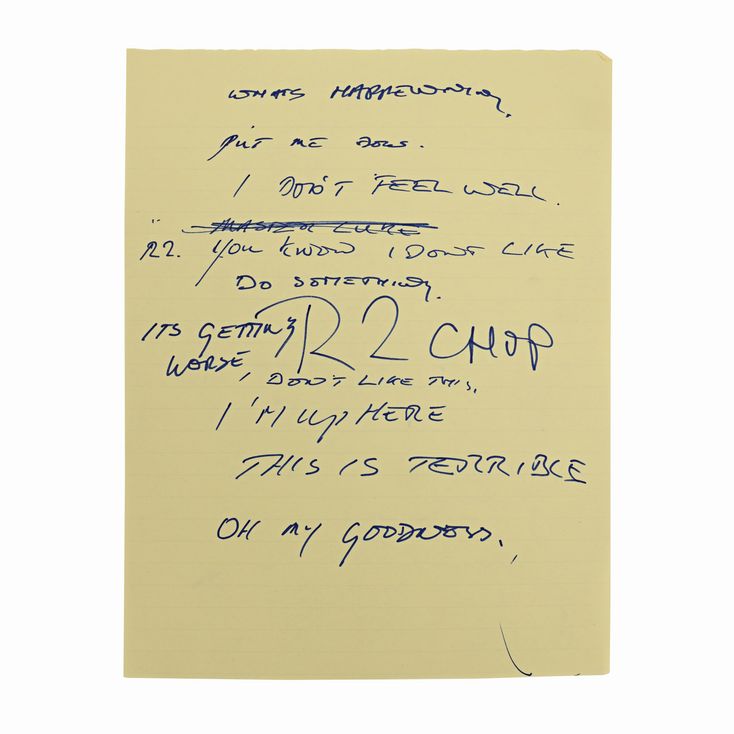 WHATS HAPPENING,
PUT ME DOWN.
I DON'T FEEL WELL.
" MASTER LUKE
R2. YOU KNOW I DONT LIKE
DO SOMETHING.
ITS GETTING R2 CHOP
WORSE
I DON'T LIKE THIS.
I'M UP HERE
THIS IS TERRIBLE
OH MY GOODNESS.,